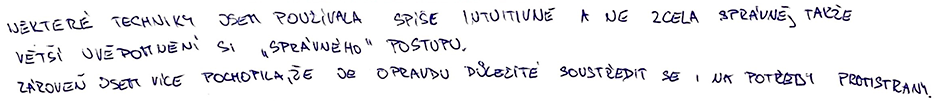 NĚKTERÉ TECHNIKY JSEM POUŽÍVALA SPÍŠE INTUITIVNĚ A NE ZCELA SPRÁVNĚ, TAKŽE
VĚTŠÍ UVĚDOMNĚNÍ SI „SPRÁVNÉHO“ POSTUPU.
ZÁROVEŇ JSEM VÍCE POCHOPILA, ŽE JE OPRAVDU DŮLEŽITÉ SOUSTŘEDIT SE I NA POTŘEBY PROTISTRANY.